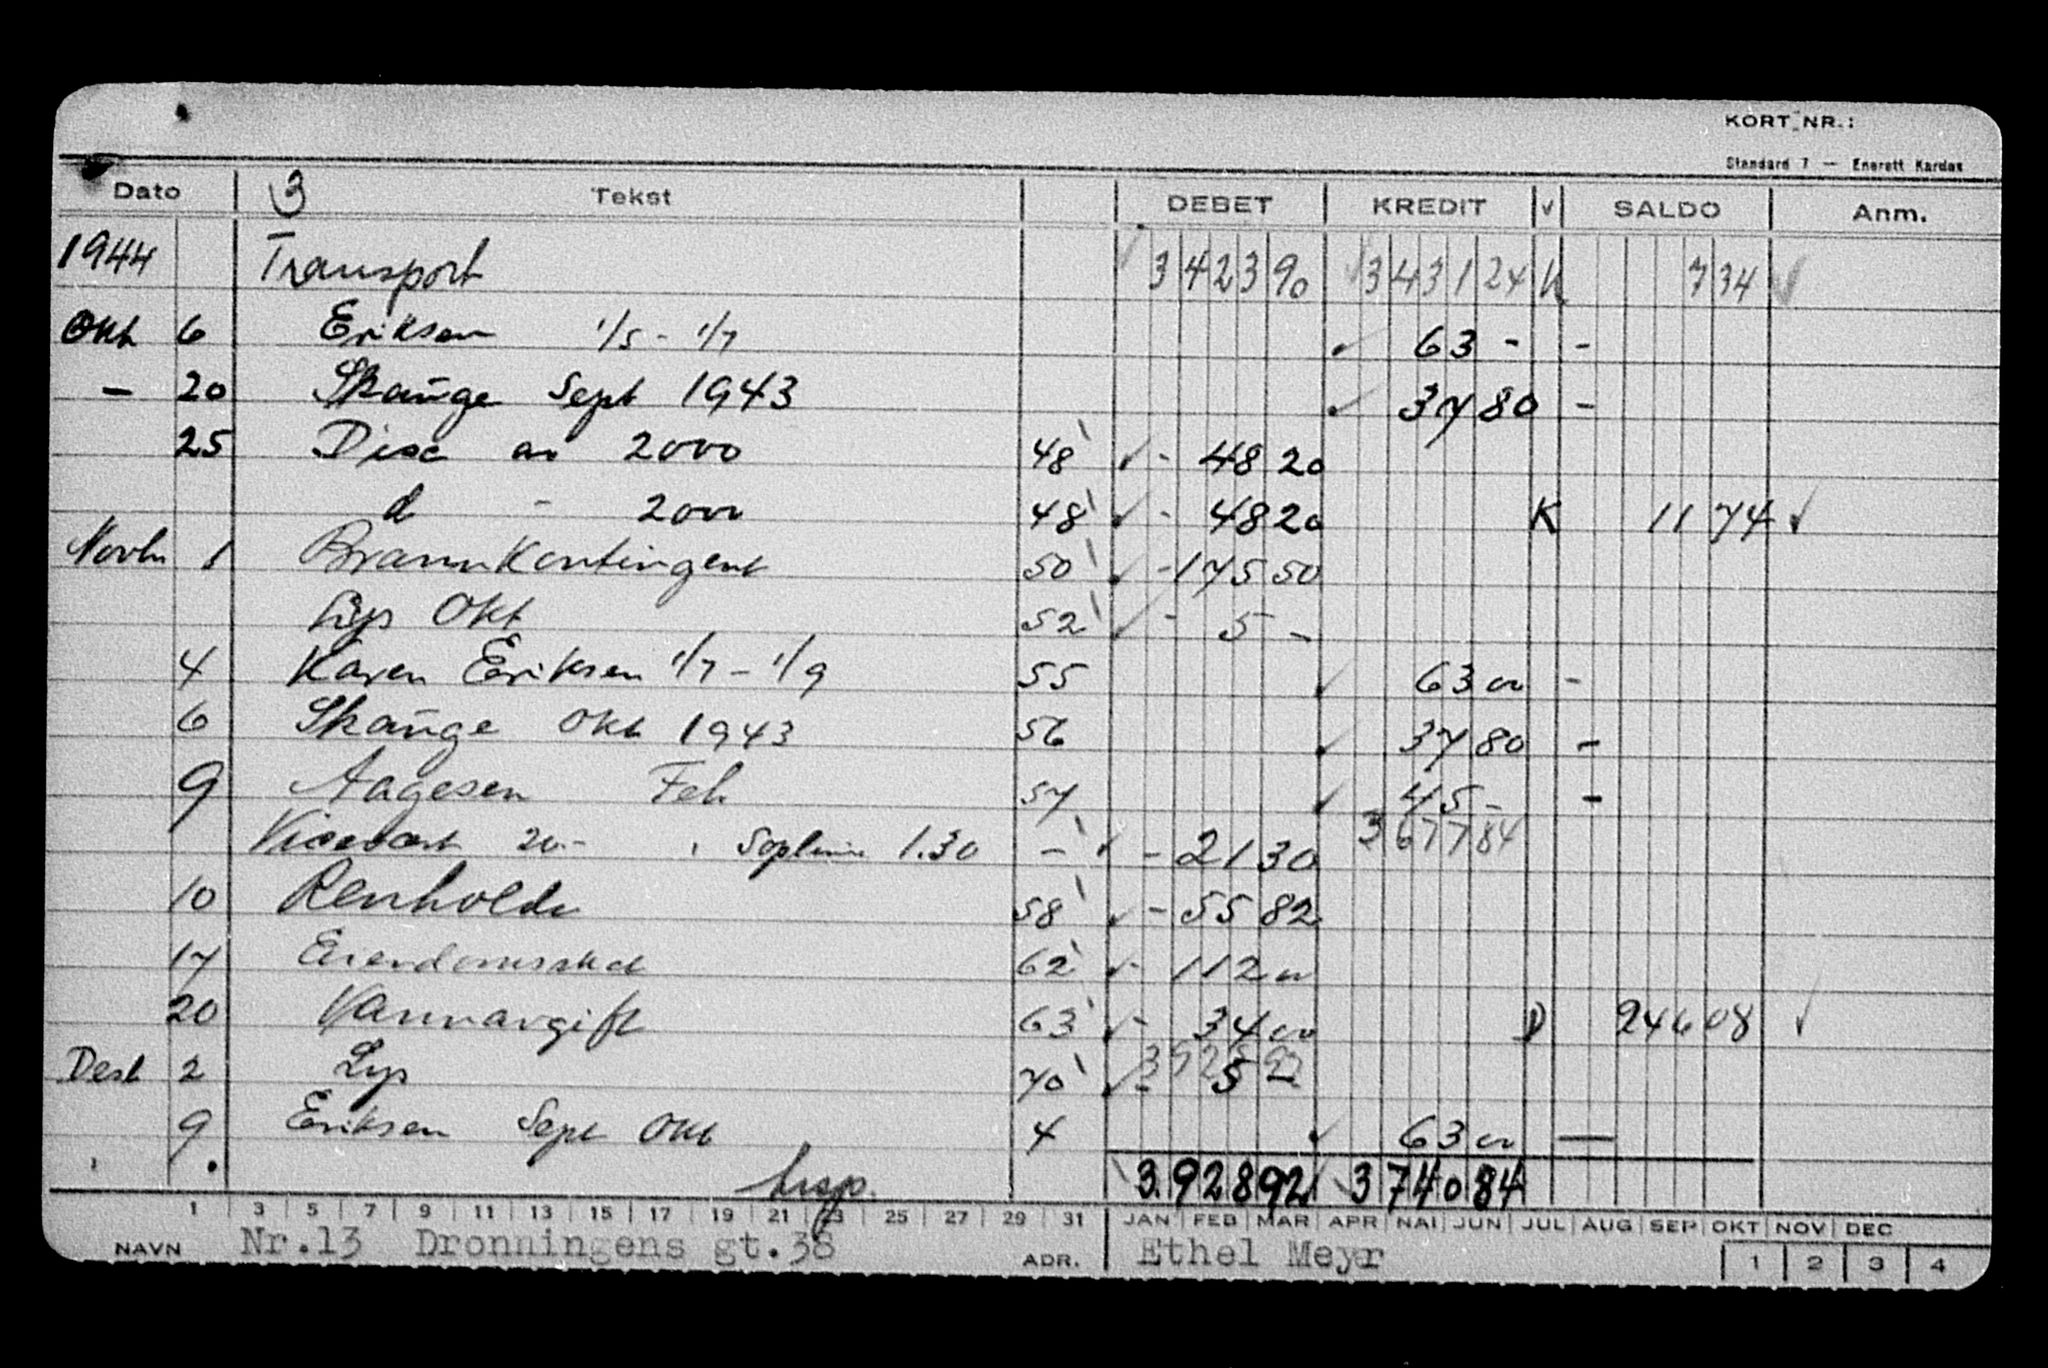 KORT NR.:
Standard 7 — Enerett Kardex
Dato 3 Tekst DEBET KREDIT v SALDO Anm.
1944 Transport 3 423 90 3 431 24 K 7 34
Okt 6 Eriksen 1/5 - 1/7 63 - -
- 20 Skauge Sept 1943 37 80 -
25 Disc av 2000 48 - 48 20
d - 2000 48 - 48 20 K 11 74
Novbr 1 Brannkontingent 50 - 175 50
Lys Okt 52 - 5 -
4 Karen Eriksen 1/7 - 1/9 55 63 00 -
6 Skauge Okt 1943 56 37 80 -
9 Aagesen Feb 57 45 - -
3 677 84
Visevært 20.- 1.30 - - 21 30
10 Renhold 58 - 55 82
17 Eiendomsskat 62 - 112 00
20 Vannavgift 63 - 34 00 D 246 08
Desb 2 Lys 70 - 5 -
9 Eriksen Sept Okt 4 63 00 —
3.928 92 3 740 84
1 3 5 7 9 11 13 15 17 19 21 23 25 27 29 31 JAN FEB MAR APR MAI JUN JUL AUG SEP OKT NOV DEC
NAVN Nr.13 Dronningens gt.38 ADR. Ethel Meyer 1 2 3 4